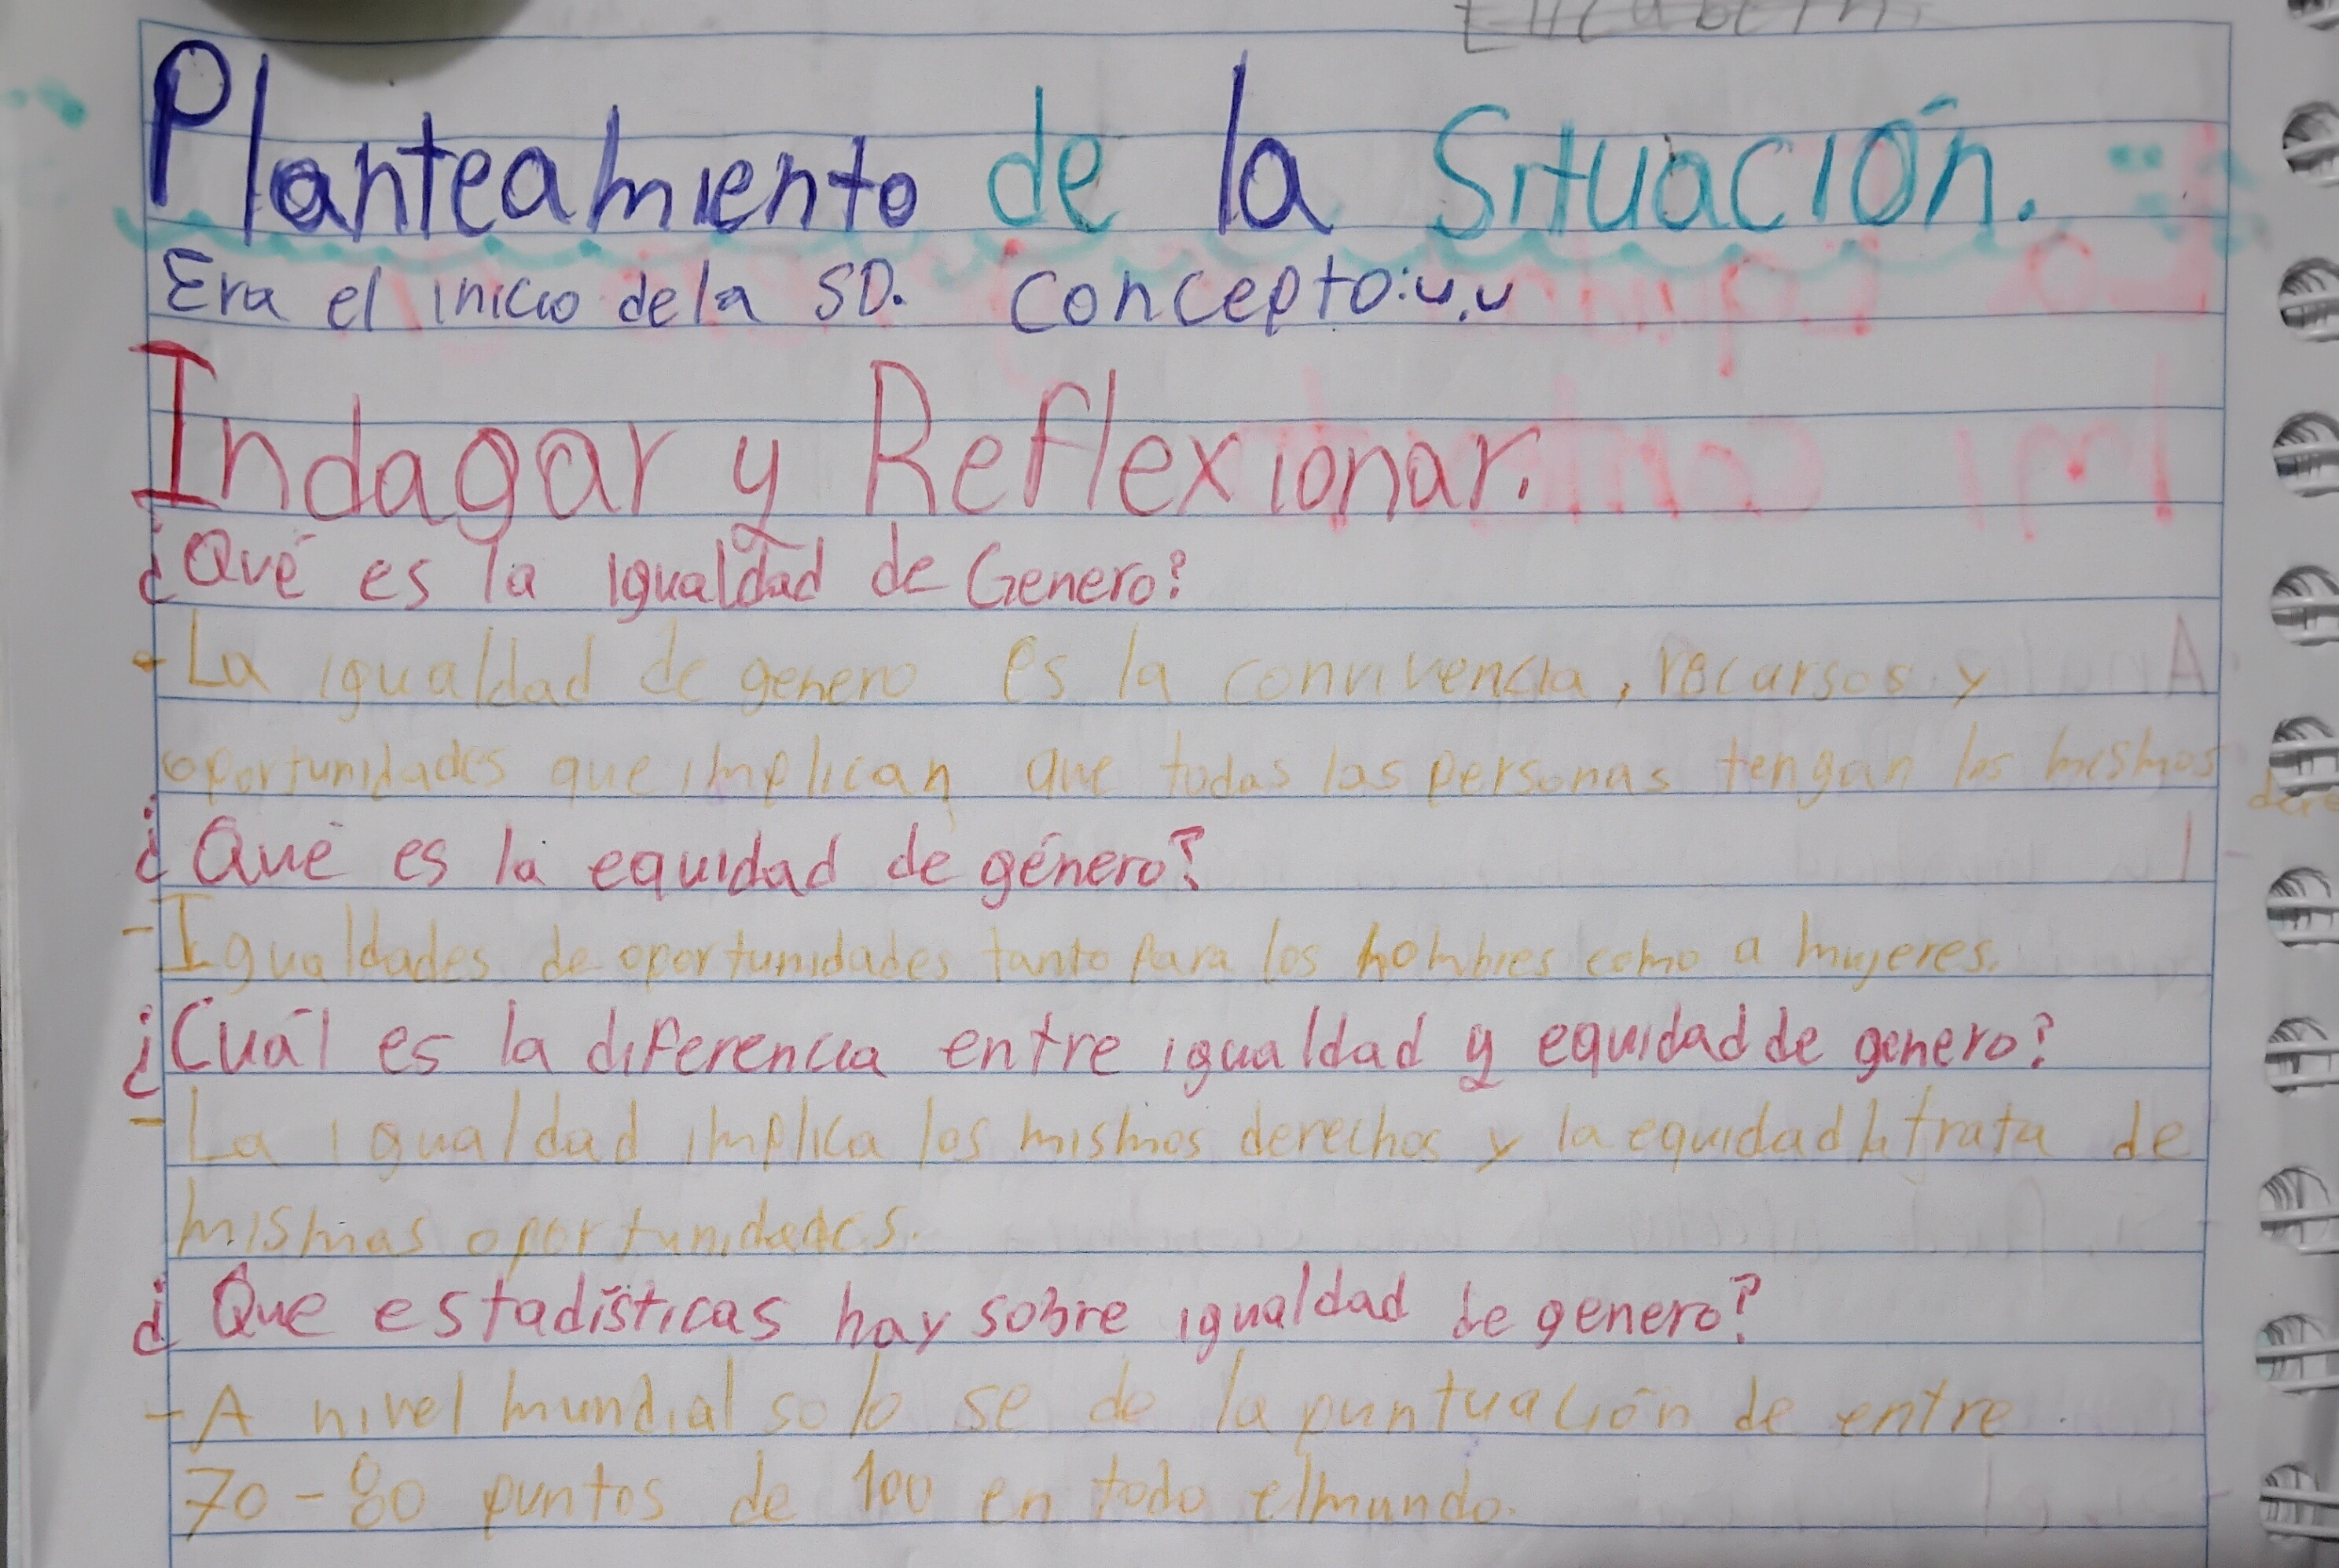 Elizabeth
Planteamiento de la Situación.
Era el inicio de la SD. Concepto: u.u
Indagar y Reflexionar.
¿Qué es la igualdad de Genero?
- La igualdad de genero es la convivencia, recursos y
oportunidades que implican que todas las personas tengan los mismos dere
¿Qué es la equidad de género?
- Igualdades de oportunidades tanto para los hombres como a mujeres.
¿Cuál es la diferencia entre igualdad y equidad de genero?
- La igualdad implica los mismos derechos y la equidad trata de
mismas oportunidades.
¿Que estadísticas hay sobre igualdad de genero?
- A nivel mundial solo se de la puntuación de entre
70-80 puntos de 100 en todo el mundo.